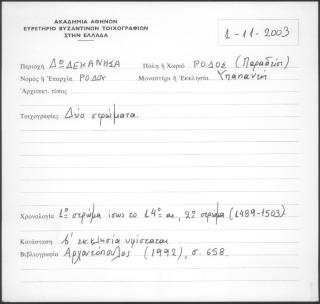 ΑΚΑΔΗΜΙΑ ΑΘΗΝΩΝ
ΕΥΡΕΤΗΡΙΟ ΒΥΖΑΝΤΙΝΩΝ ΤΟΙΧΟΓΡΑΦΙΩΝ
ΣΤΗΝ ΕΛΛΑΔΑ
1-11-2003
Περιοχή ΔΩΔΕΚΑΝΗΣΑ Πόλη ἤ Χωριό ΡΟΔΟΣ (Παραδείσι)
Νομός ἤ Ἐπαρχία ΡΟΔΟΥ Μοναστήρι ἤ Ἐκκλησία Υπαπαντή
Ἀρχιτεκτ. τύπος
Τοιχογραφίες Δύο στρώματα.
Χρονολογία 1ο στρώμα ίσως το 14ο αι., 2ο στρώμα (1489-1503).
Κατάσταση εκκλησία υφίσταται
Βιβλιογραφία (1992), σ. 658.